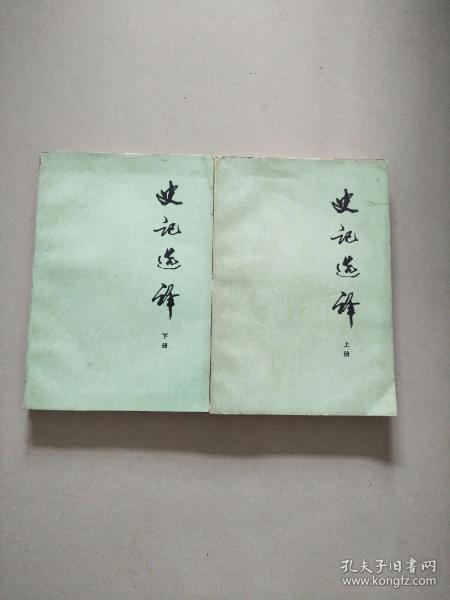 史记选译
下册
史记选译
上册
孔夫子旧书网
www.kongfz.com